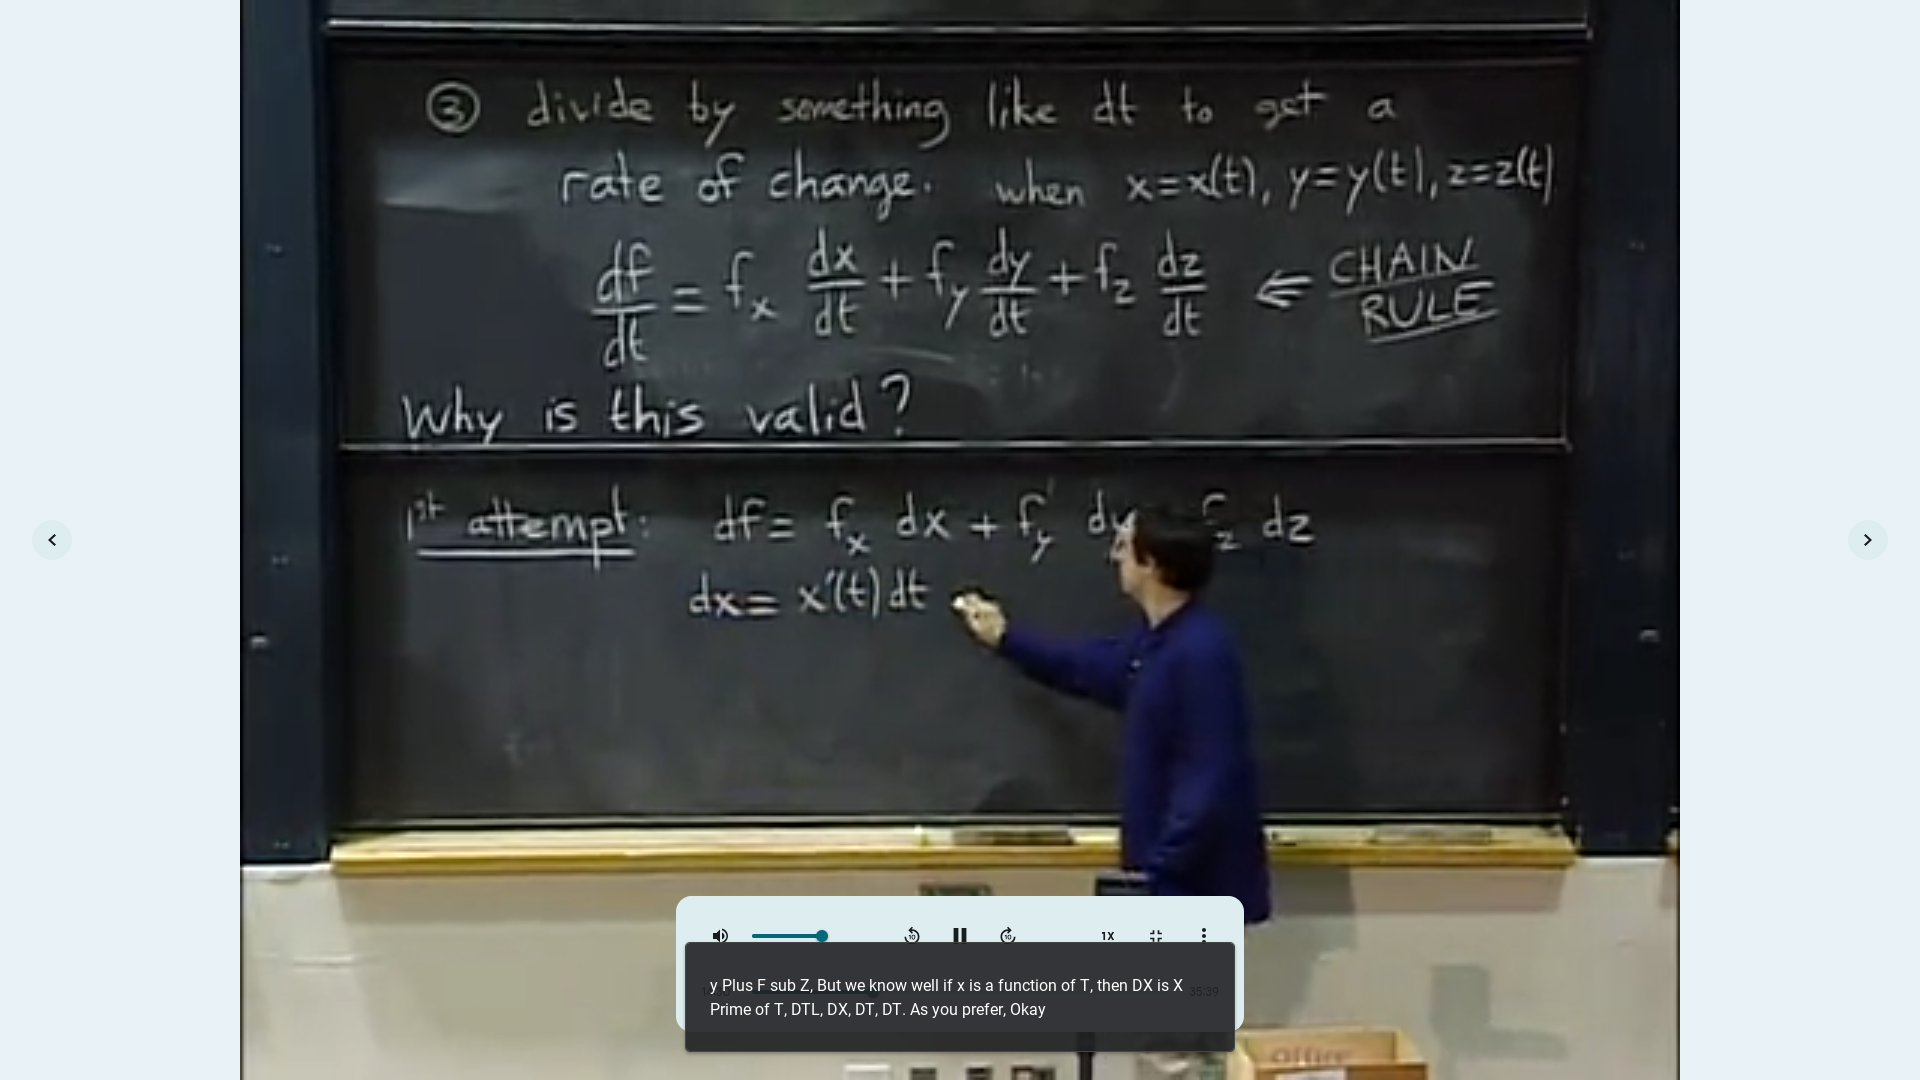 ③ divide by something like dt to get a
rate of change. when x=x(t), y=y(t), z=z(t)
df/dt = f_x dx/dt + f_y dy/dt + f_z dz/dt ⇐ CHAIN RULE
Why is this valid?
1st attempt: df = f_x dx + f_y dy f_z dz
dx = x'(t) dt
10 10 1X
35:39
y Plus F sub Z, But we know well if x is a function of T, then DX is X
Prime of T, DTL, DX, DT, DT. As you prefer, Okay
Office